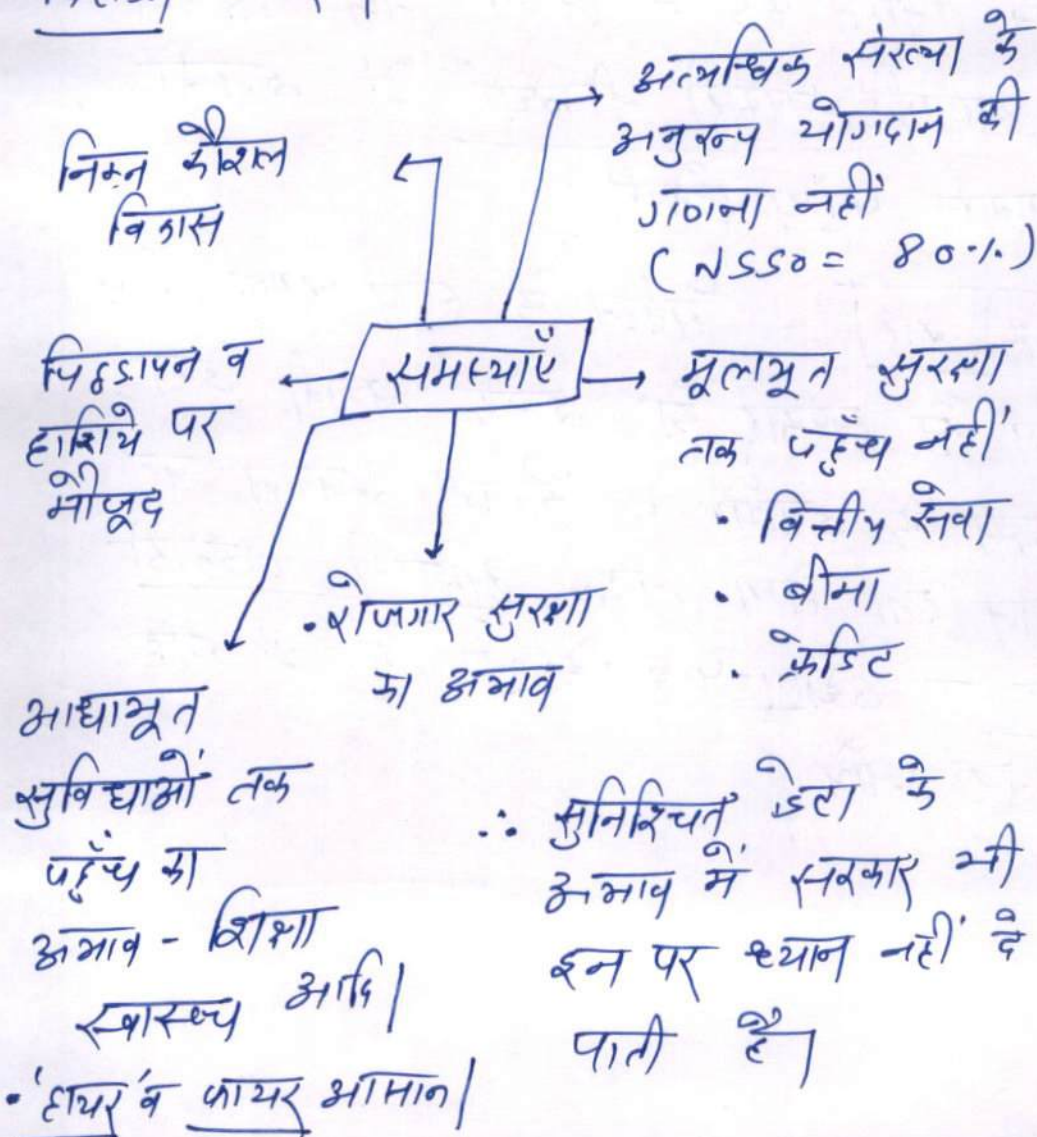 निम्न कौशल
विकास
अत्यधिक संख्या के
अनुरूप योगदान की
गणना नहीं
(NSSO = 80%)
समस्याएँ
पिछडापन व
हाशिये पर
मौजूद
मूलभूत सुरक्षा
तक पहुँच नहीं
• वित्तीय सेवा
• बीमा
• क्रेडिट
• रोजगार सुरक्षा
का अभाव
आधाभूत
सुविधाओं तक
पहुँच का
अभाव - शिक्षा
स्वास्थ्य आदि।
• 'हायर' व फायर आसान।
∴ सुनिश्चित डेटा के
अभाव में सरकार भी
इन पर ध्यान नहीं दे
पाती है।